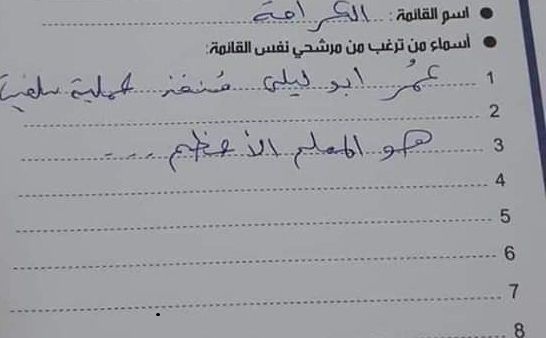 اسم القائمة: الكرامة
أسماء من ترغب من مرشحي نفس القائمة:
1 عمُر ابو ليلى مُنفذ عملية سلفيت
2
3 هو المعلم الأعظم ...
4
5
6
7
8